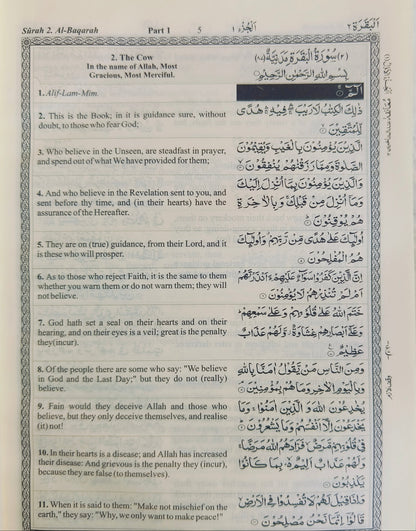 Sûrah 2. Al-Baqarah Part 1 5 اَلْجُزْءُ ١ اَلْبَقَرَة ٢
2. The Cow
In the name of Allah, Most
Gracious, Most Merciful.
سُوْرَةُ الْبَقَرَةِ مَدَنِيَّةٌ
بِسْمِ اللهِ الرَّحْمٰنِ الرَّحِيْمِ
1. Alif-Lam-Mim.
الٓمّٓ
2. This is the Book; in it is guidance sure, without
doubt, to those who fear God;
ذٰلِكَ الْكِتٰبُ لَا رَيْبَ فِيْهِ هُدًى
لِّلْمُتَّقِيْنَ
3. Who believe in the Unseen, are steadfast in prayer,
and spend out of what We have provided for them;
الَّذِيْنَ يُؤْمِنُوْنَ بِالْغَيْبِ وَيُقِيْمُوْنَ
الصَّلٰوةَ وَمِمَّا رَزَقْنٰهُمْ يُنْفِقُوْنَ
4. And who believe in the Revelation sent to you, and
sent before thy time, and (in their hearts) have the
assurance of the Hereafter.
وَالَّذِيْنَ يُؤْمِنُوْنَ بِمَا اُنْزِلَ اِلَيْكَ
وَمَا اُنْزِلَ مِنْ قَبْلِكَ وَبِالْاٰخِرَةِ
هُمْ يُوْقِنُوْنَ
5. They are on (true) guidance, from their Lord, and it
is these who will prosper.
اُولٰٓئِكَ عَلٰى هُدًى مِّنْ رَّبِّهِمْ وَاُولٰٓئِكَ
هُمُ الْمُفْلِحُوْنَ
6. As to those who reject Faith, it is the same to them
whether you warn them or do not warn them; they will
not believe.
اِنَّ الَّذِيْنَ كَفَرُوْا سَوَآءٌ عَلَيْهِمْ ءَاَنْذَرْتَهُمْ
اَمْ لَمْ تُنْذِرْهُمْ لَا يُؤْمِنُوْنَ
7. God hath set a seal on their hearts and on their
hearing, and on their eyes is a veil; great is the penalty
they(incur).
خَتَمَ اللهُ عَلٰى قُلُوْبِهِمْ وَعَلٰى سَمْعِهِمْ
وَعَلٰٓى اَبْصَارِهِمْ غِشَاوَةٌ وَّلَهُمْ عَذَابٌ
عَظِيْمٌ
8. Of the people there are some who say: "We believe
in God and the Last Day;" but they do not (really)
believe.
وَمِنَ النَّاسِ مَنْ يَّقُوْلُ اٰمَنَّا بِاللهِ
وَبِالْيَوْمِ الْاٰخِرِ وَمَا هُمْ بِمُؤْمِنِيْنَ
9. Fain would they deceive Allah and those who
believe, but they only deceive themselves, and realise
(it) not!
يُخٰدِعُوْنَ اللهَ وَالَّذِيْنَ اٰمَنُوْا وَمَا
يَخْدَعُوْنَ اِلَّآ اَنْفُسَهُمْ وَمَا يَشْعُرُوْنَ
10. In their hearts is a disease; and Allah has increased
their disease: And grievous is the penalty they (incur),
because they are false (to themselves).
فِيْ قُلُوْبِهِمْ مَّرَضٌ فَزَادَهُمُ اللهُ مَرَضًا
وَلَهُمْ عَذَابٌ اَلِيْمٌ بِمَا كَانُوْا
يَكْذِبُوْنَ
11. When it is said to them: "Make not mischief on the
earth," they say: "Why, we only want to make peace!"
وَاِذَا قِيْلَ لَهُمْ لَا تُفْسِدُوْا فِي الْاَرْضِ
قَالُوْٓا اِنَّمَا نَحْنُ مُصْلِحُوْنَ